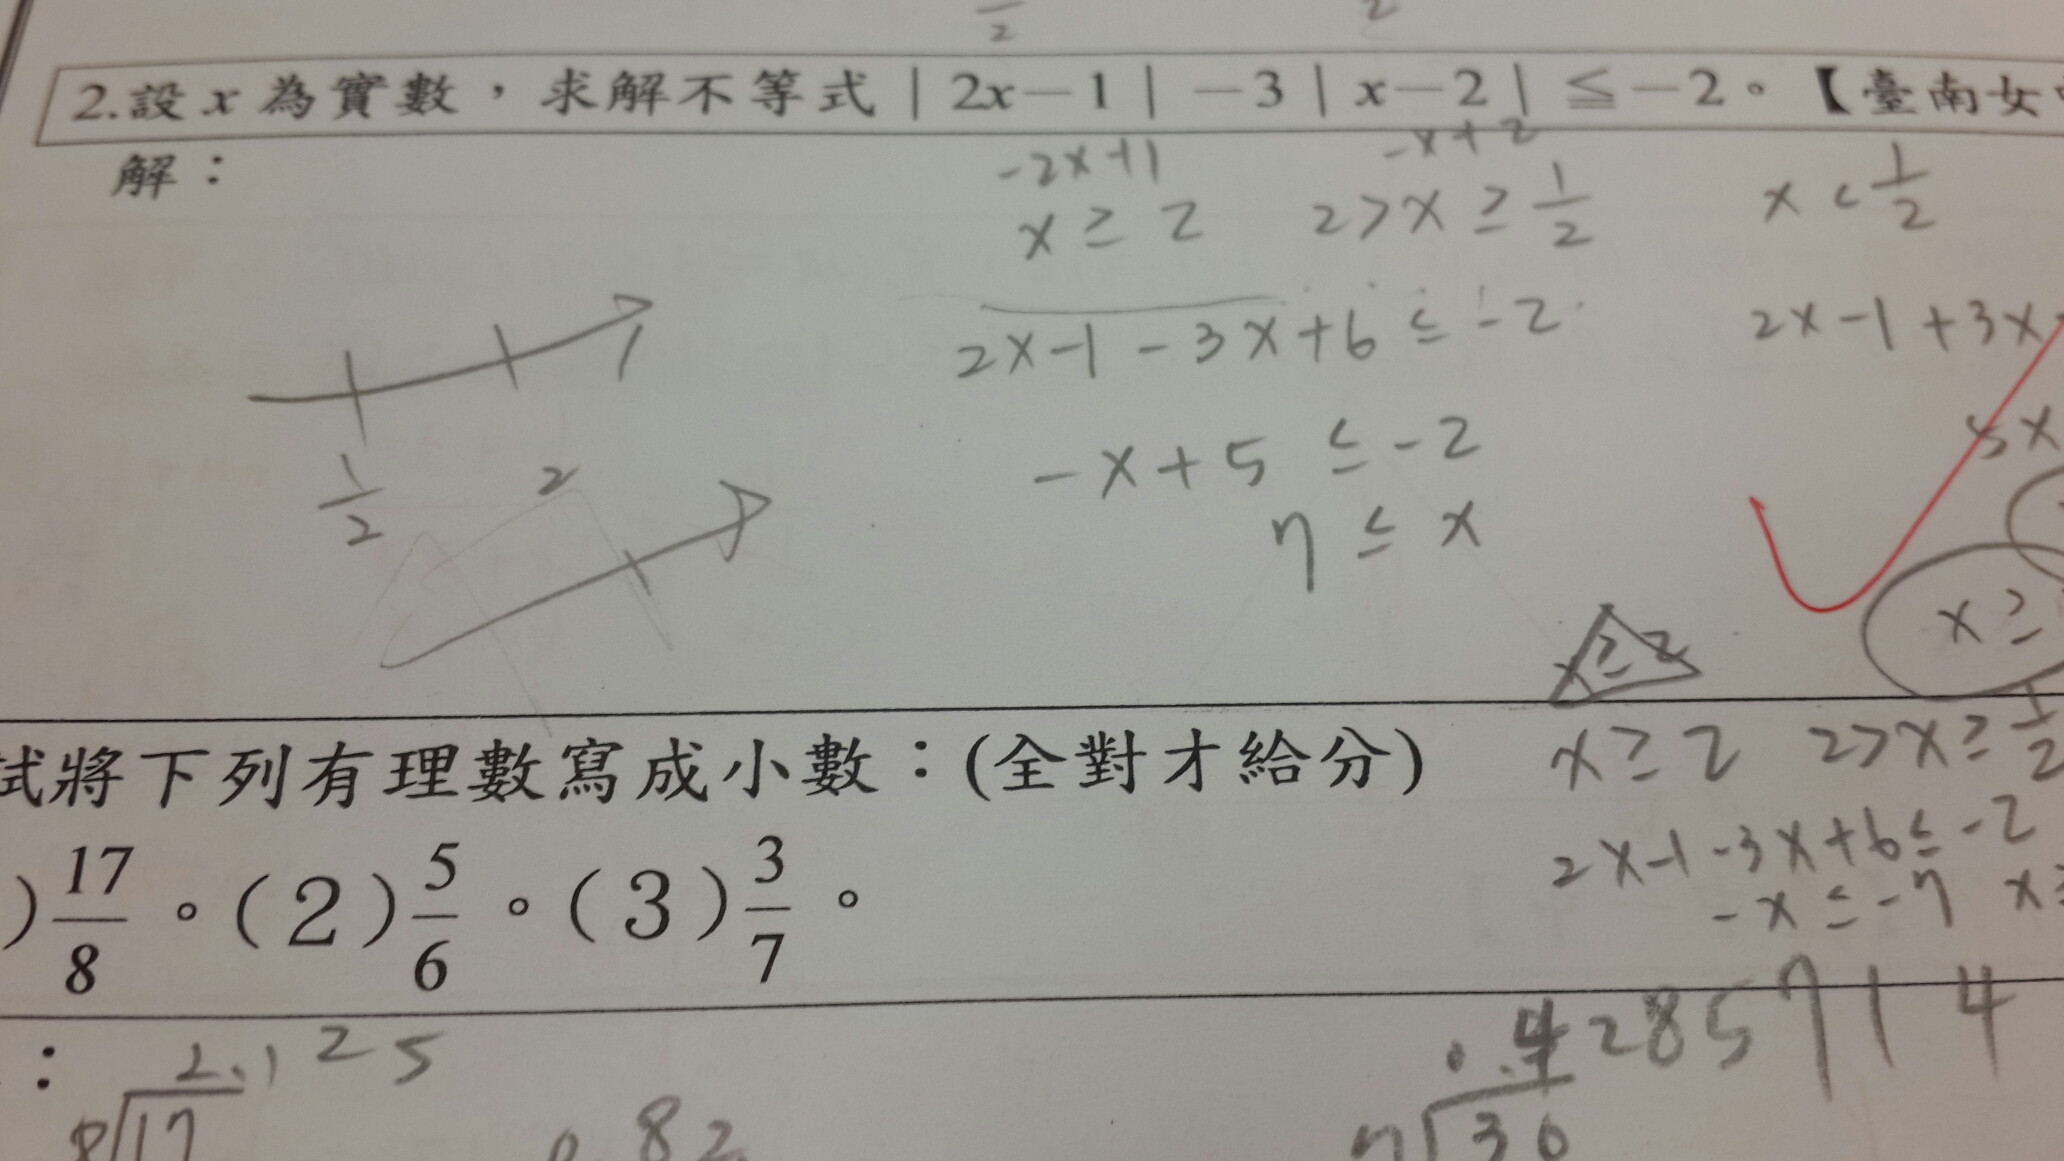 2.設 x 為實數,求解不等式 | 2x-1 | -3 | x-2 | ≦ -2。【臺南女
解:
-2x+1
-x+2
x ≥ 2
2 > x ≥ 1/2
x < 1/2
2x-1-3x+6 ≤ -2
2x-1+3x
-x+5 ≤ -2
5x
7 ≤ x
1/2
2
x ≥ 2
x ≥
試將下列有理數寫成小數:(全對才給分)
x ≥ 2
2 > x ≥ 1/2
)17/8。(2)5/6。(3)3/7。
2x-1-3x+6 ≤ -2
-x ≤ -7
x ≥
:
2.125
0.428571 4
8 17
0.82
7 30